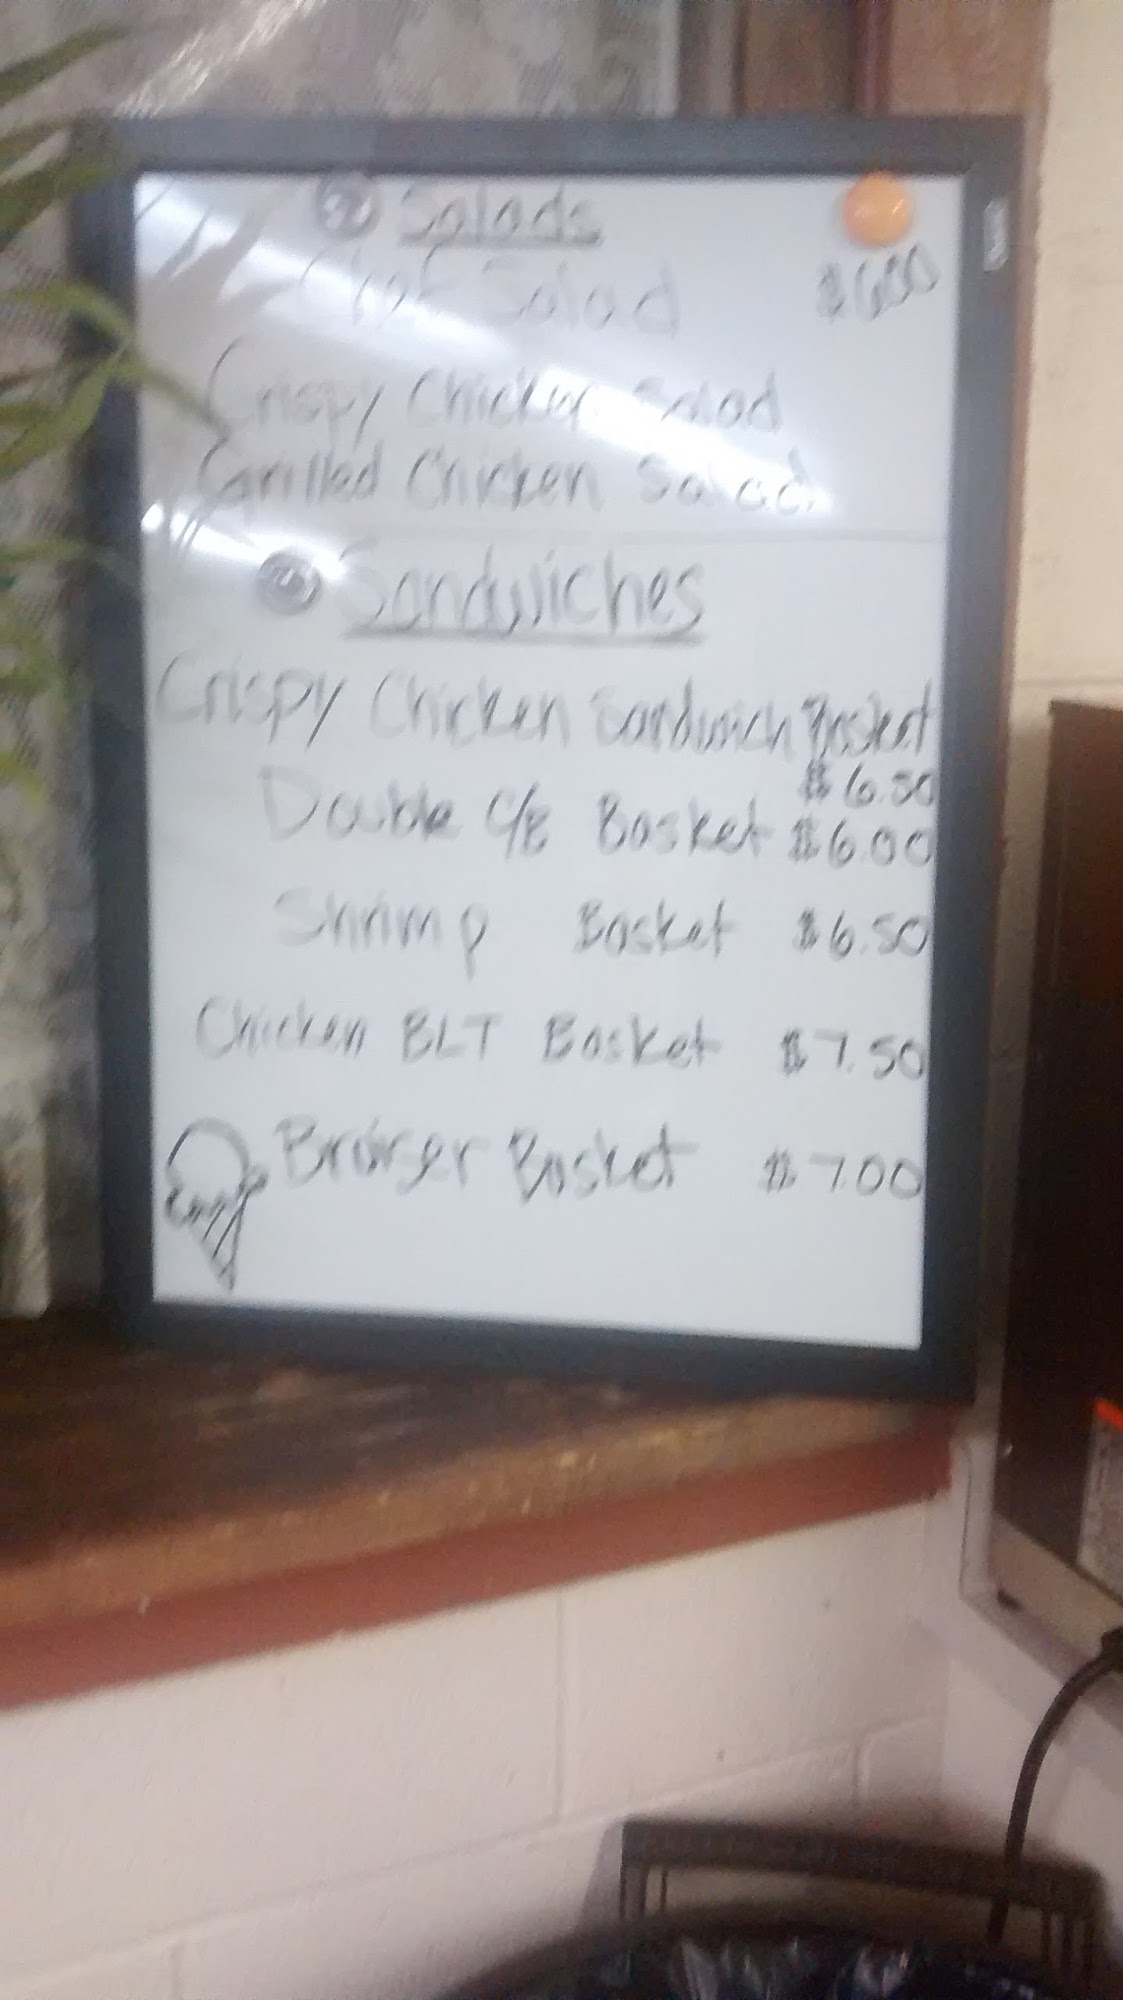 Salads
Chef Salad $6.00
Crispy Chicken Salad
Grilled Chicken Salad
Sandwiches
Crispy Chicken Sandwich Basket
$6.50
Double C/B Basket $6.00
Shrimp Basket $6.50
Chicken BLT Basket $7.50
Bruiser Basket $7.00